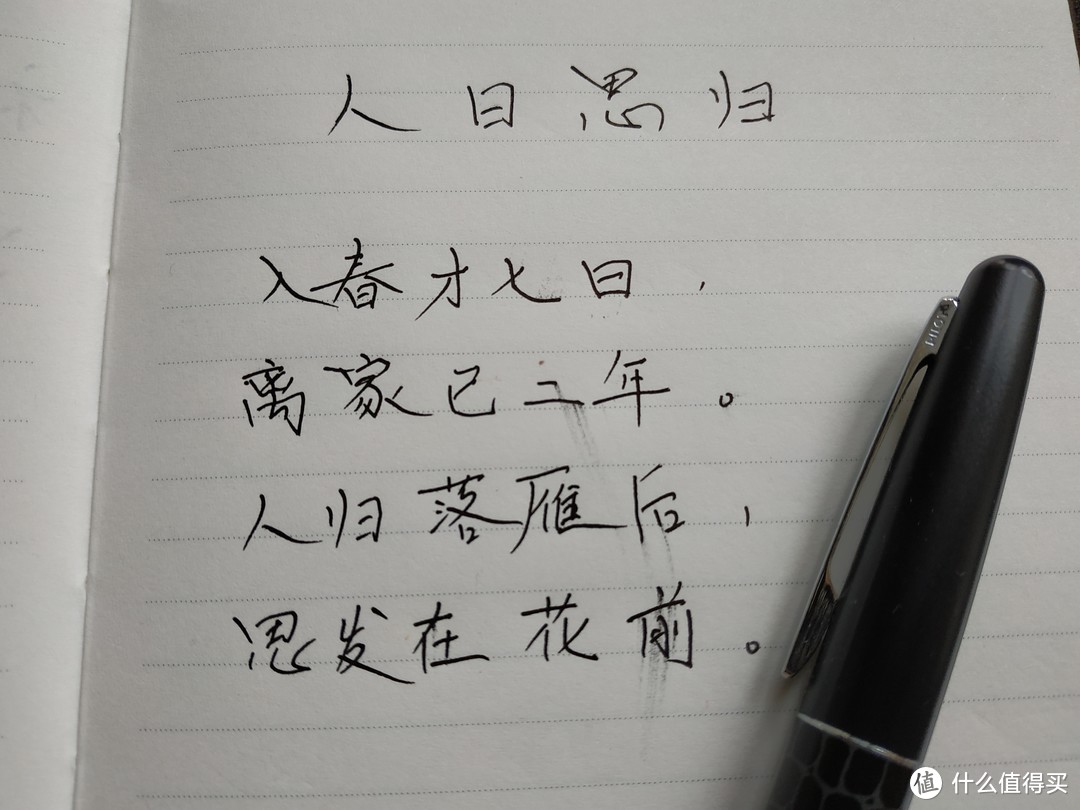 人日思归
入春才七日，
离家已二年。
人归落雁后，
思发在花前。
PILOT
值 什么值得买